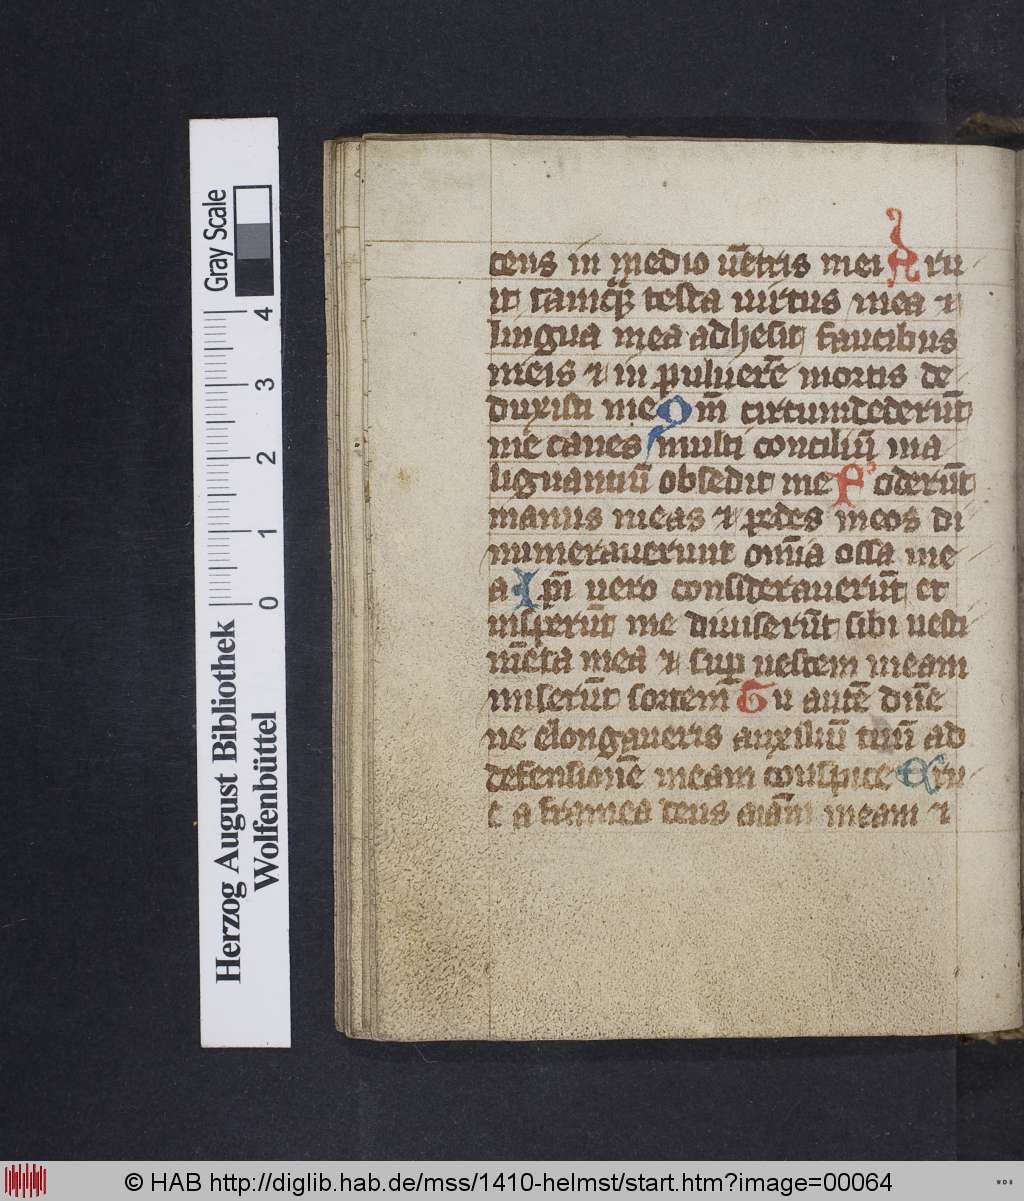 cens in medio ūetris mei Aru
it tamq̄ testa uirtus mea ⁊
lingua mea adhesit faucibus
meis ⁊ in puluerē mortis de
duxisti me Qm̄ circumdederūt
me canes multi conciliū ma
lignantiū obsedit me Foderūt
manus meas ⁊ pedes meos di
numerauerunt om̄ia ossa me
a Ip̄i uero considerauerūt et
insperūt me diuiserūt sibi uesti
mēta mea ⁊ sup uestem meam
miserūt sortem Tu autē dn̄e
ne elongaueris auxiliū tuū ad
defensionē meam conspice Eru
e a framea deus aīam meam ⁊
Gray Scale
4
3
2
1
0
Herzog August Bibliothek
Wolfenbüttel
© HAB http://diglib.hab.de/mss/1410-helmst/start.htm?image=00064